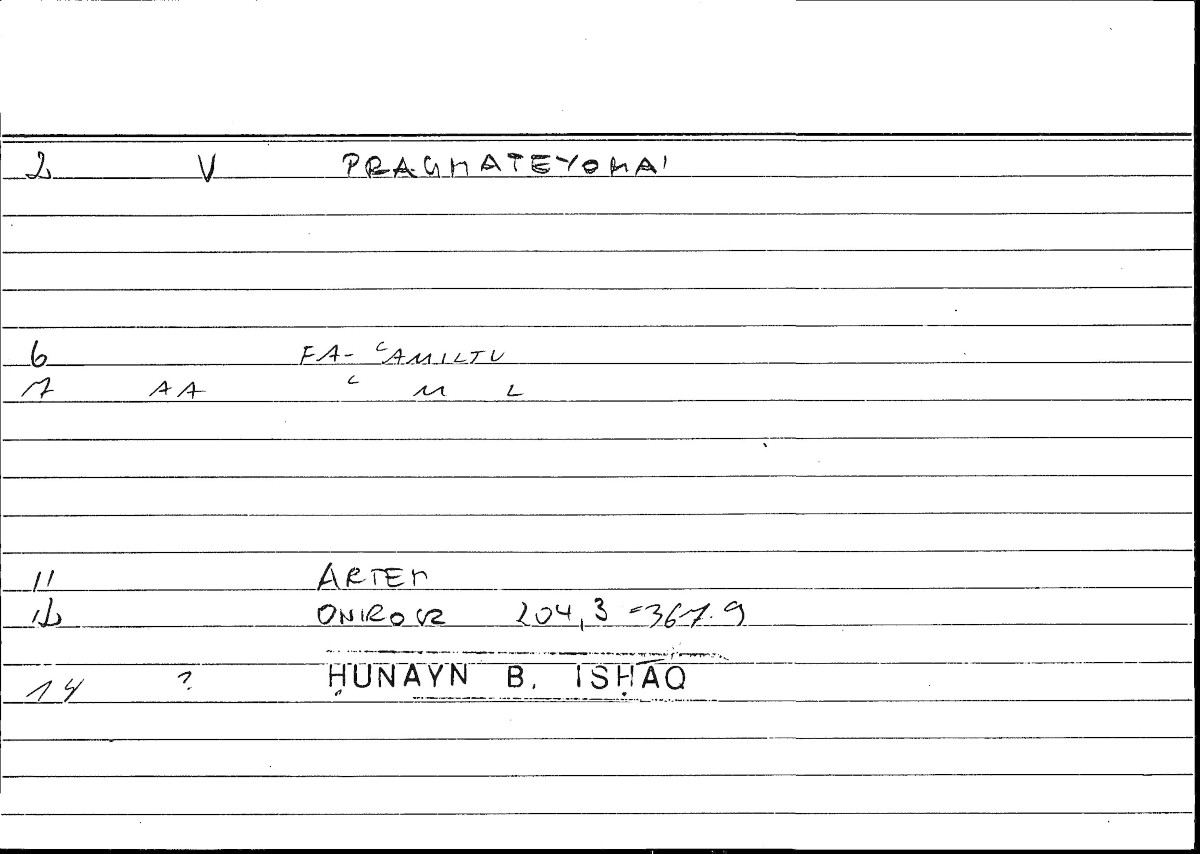 2 V PRAGMATEYOMAI
6 FA- ʿAMILTU
7 AA ʿ M L
11 ARTEM
12 ONIROCR 204,3 = 367.9
14 ? ḤUNAYN B. ISḤĀQ